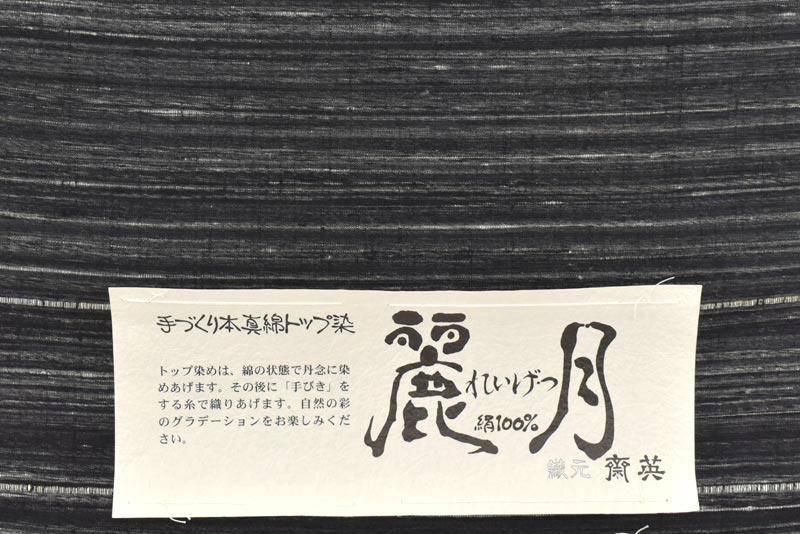 手づくり本真綿トップ染
トップ染めは、綿の状態で丹念に染
めあげます。その後に「手びき」を
する糸で織りあげます。自然の彩
のグラデーションをお楽しみくだ
さい。
麗月
れいげつ
絹100%
織元 齋英